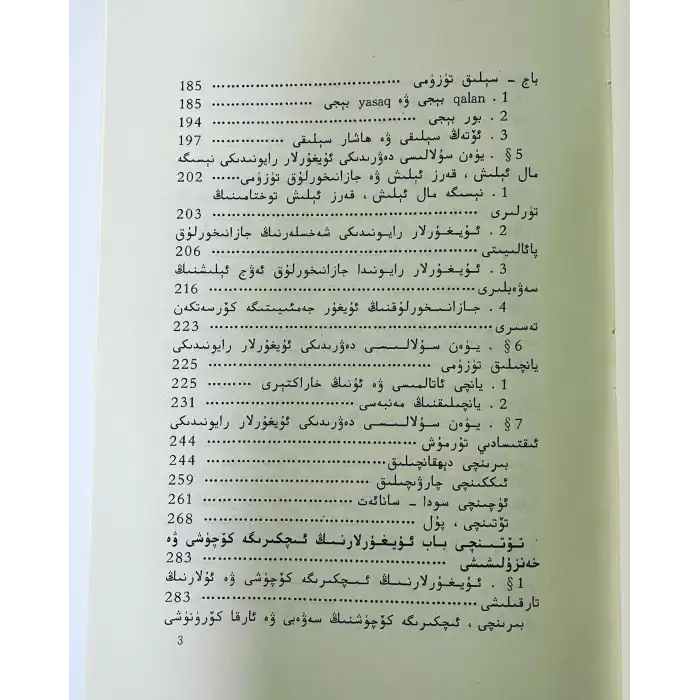 باج - سېلىق تۈزۈمى ........................................ 185
1 . qalan بېجى ۋە yasaq بېجى ...................... 185
2 . بور بېجى ................................................ 194
3 . ئۆتەڭ سېلىقى ۋە ھاشار سېلىقى ................ 197
§ 5 . يۈەن سۇلالىسى دەۋرىدىكى ئۇيغۇرلار رايونىدىكى نېسىگە
مال ئېلىش ، قەرز ئېلىش ۋە جازانىخورلۇق تۈزۈمى...... 202
1 . نېسىگە مال ئېلىش ، قەرز ئېلىش توختامىنىڭ
تۈرلىرى ...................................................... 203
2 . ئۇيغۇرلار رايونىدىكى شەخسلەرنىڭ جازانىخورلۇق
پائالىيىتى ................................................... 206
3 . ئۇيغۇرلار رايونىدا جازانىخورلۇق ئەۋج ئېلىشنىڭ
سەۋەبلىرى .................................................. 216
4 . جازانىخورلۇقنىڭ ئۇيغۇر جەمئىيىتىگە كۆرسەتكەن
تەسىرى ...................................................... 223
§ 6 . يۈەن سۇلالىسى دەۋرىدىكى ئۇيغۇرلار رايونىدىكى
يانچىلىق تۈزۈمى ........................................... 225
1 . يانچى ئاتالمىسى ۋە ئۇنىڭ خاراكتېرى .......... 225
2 . يانچىلىقنىڭ مەنبەسى ................................ 231
§ 7 . يۈەن سۇلالىسى دەۋرىدىكى ئۇيغۇرلار رايونىدىكى
ئىقتىسادىي تۇرمۇش ......................................... 244
بىرىنچى دېھقانچىلىق ........................................ 244
ئىككىنچى چارۋىچىلىق ..................................... 259
ئۈچىنچى سودا - سانائەت .................................. 261
تۆتىنچى ، پۇل ................................................ 268
تۆتىنچى باب ئۇيغۇرلارنىڭ ئىچكىرىگە كۆچۈشى ۋە
خەنزۇلىشىشى ................................................ 283
§ 1 . ئۇيغۇرلارنىڭ ئىچكىرىگە كۆچۈشى ۋە ئۇلارنىڭ
تارقىلىشى ..................................................... 283
بىرىنچى ، ئىچكىرىگە كۆچۈشنىڭ سەۋەبى ۋە ئارقا كۆرۈنۈشى
3